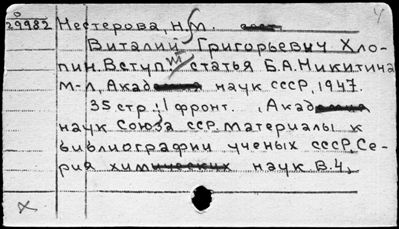 0
29982 Нестерова, Н.М.
Виталий Григорьевич Хло-
пин. Вступ статья Б.А. Никитина
М-Л, Акад наук СССР, 1947.
35 стр., 1 фронт. Акад
наук Союза ССР. Материалы к
библиографии ученых СССР. Се-
рия хим наук В. 4,
X